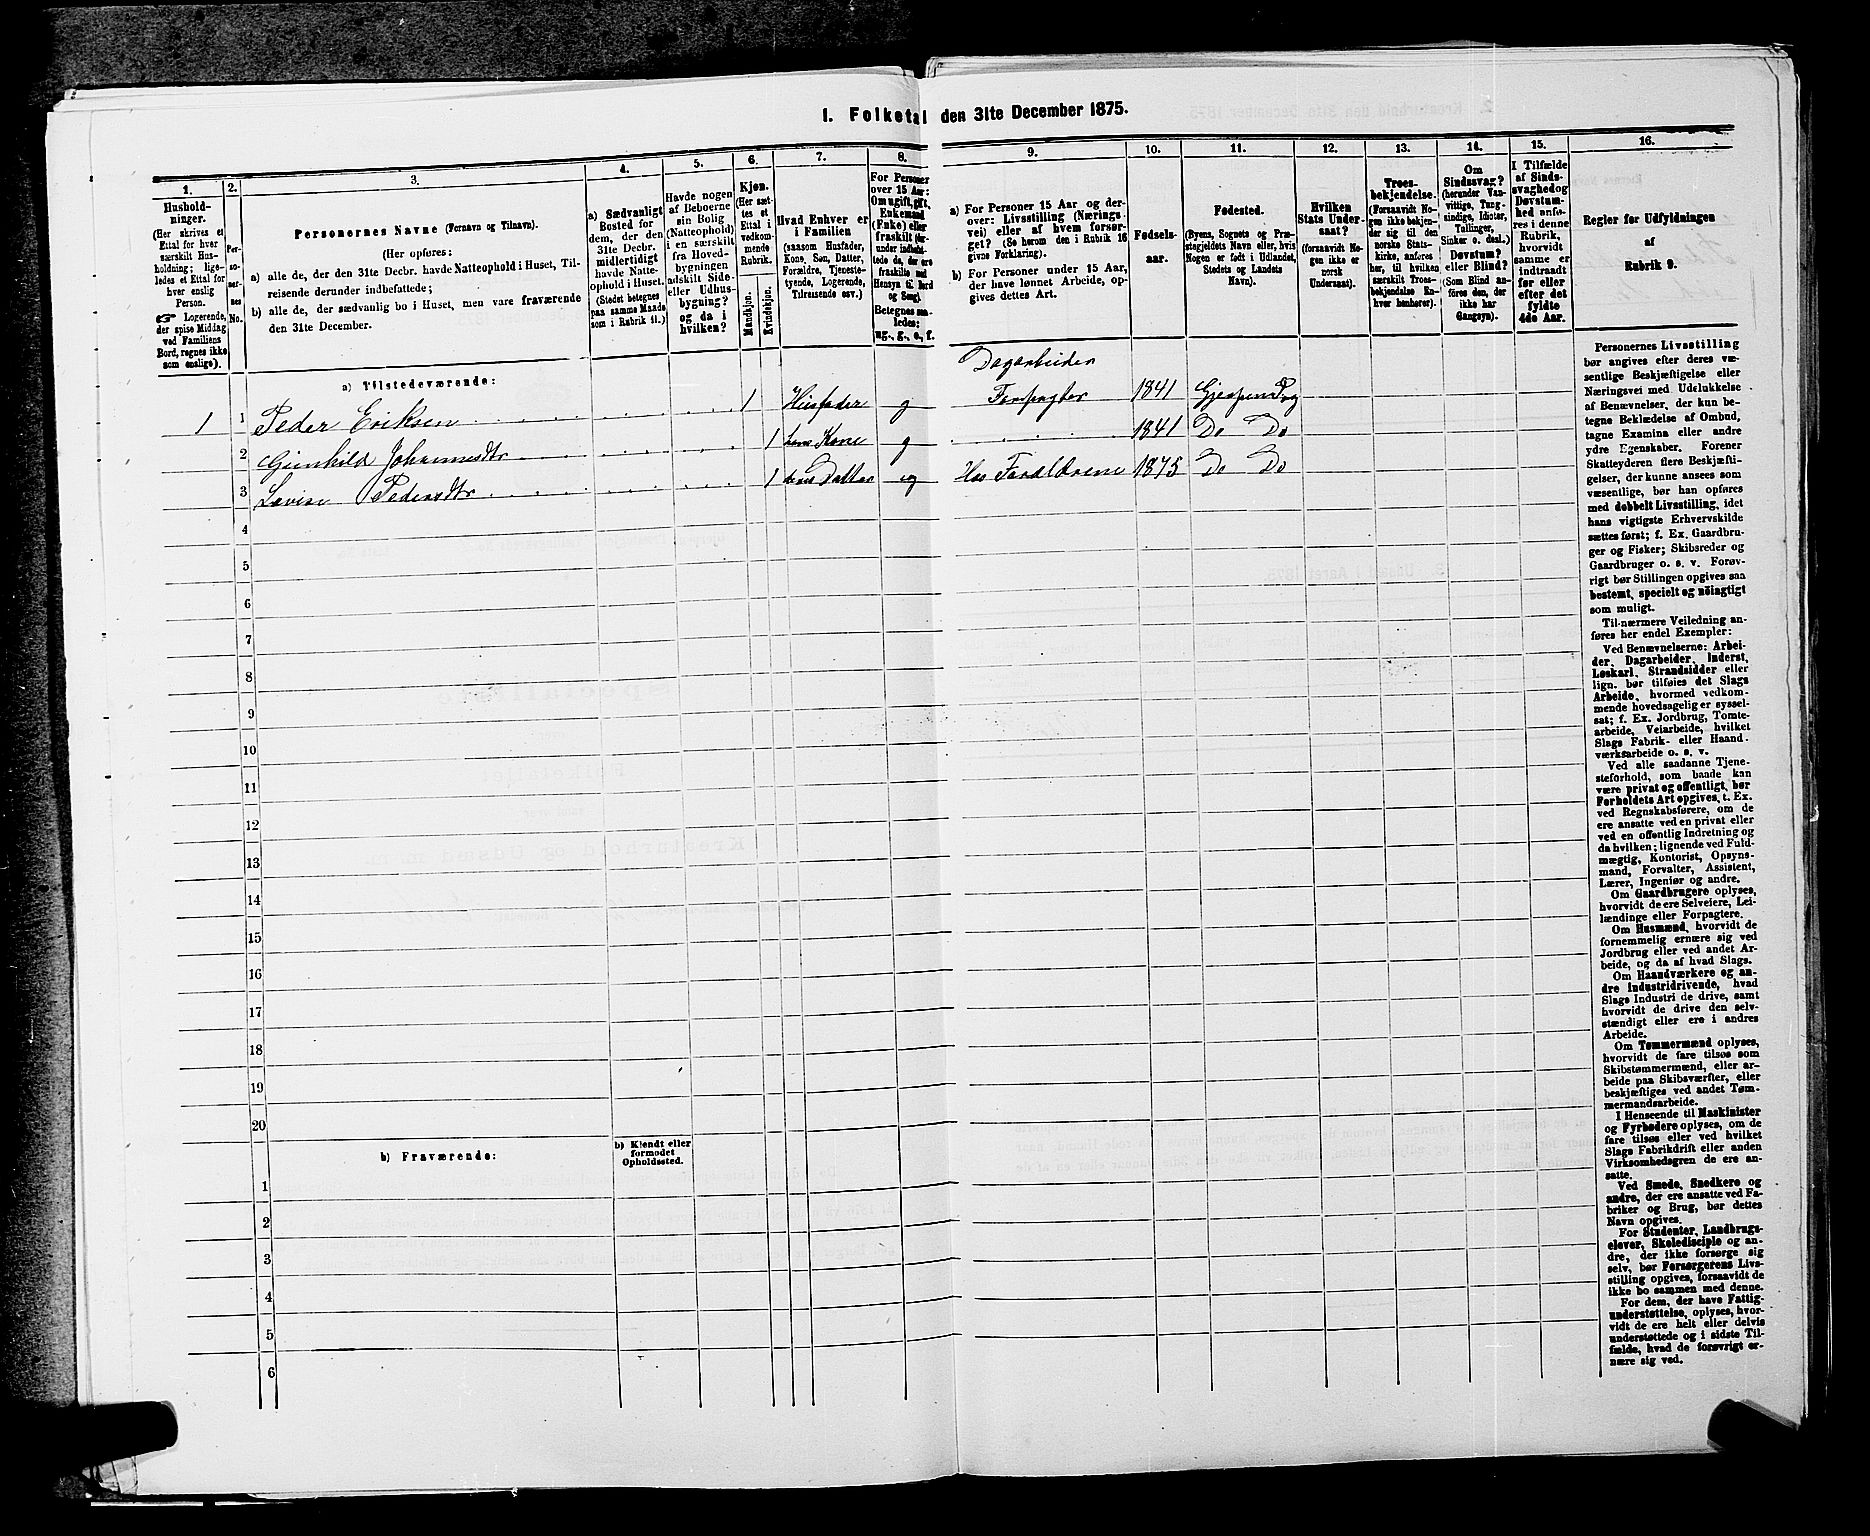 1. Folketal den 31te December 1875.
1.
Hushold-
ninger.
(Her skrives et
Ettal for hver
særskilt Hus-
holdning; lige-
ledes et Ettal for
hver enslig
Person.
☞ Logerende,
der spise Middag
ved Familiens
Bord, regnes ikke
som enslige).
2.
Per-
so-
ner-
nes
No.
3.
Personernes Navne (Fornavn og Tilnavn).
(Her opføres:
a) alle de, der den 31te Decbr. havde Natteophold i Huset, Til-
reisende derunder indbefattede;
b) alle de, der sædvanlig bo i Huset, men vare fraværende
den 31te December.
4.
a) Sædvanligt
Bosted for
dem, der den
31te Decbr.
midlertidigt
havde Natte-
ophold i Huset.
(Stedet betegnes
paa samme Maade
som i Rubrik 11.)
5.
Havde nogen
af Beboerne
sin Bolig
(Natteophold)
i en særskilt
fra Hoved-
bygningen
adskilt Side-
eller Udhus-
bygning?
og da i
hvilken?
6.
Kjøn.
(Her sæt-
tes et
Ettal i
vedkom-
mende
Rubrik.
Mandkjøn.
Kvindekjøn.
7.
Hvad Enhver er
i Familien
(saasom Husfader,
Kone, Søn, Datter,
Forældre, Tjeneste-
tyende, Logerende,
Tilreisende osv.)
8.
For Personer
over 15 Aar:
Om ugift, gift,
Enkemand
(Enke) eller
fraskilt (her-
under indbefat-
tede de, der ere
fraskilte med
Hensyn til Bord
og Seng).
Betegnes saa-
ledes:
ug., g., e., f.
9.
a) For Personer 15 Aar og der-
over: Livsstilling (Nærings-
vei) eller af hvem forsør-
get? (Se herom den i Rubrik 16
givne Forklaring).
b) For Personer under 15 Aar,
der have lønnet Arbeide, op-
gives dettes Art.
10.
Fødsels-
aar.
11.
Fødested.
(Byens, Sognets og Præ-
stegjeldets Navn eller, hvis
Nogen er født i Udlandet,
Stedets og Landets
Navn).
12.
Hvilken
Stats Under-
saat?
(forsaavidt No-
gen ikke er
norsk
Undersaat).
13.
Troes-
bekjendelse.
(Forsaavidt No-
gen ikke bekjen-
der sig til den
norske Stats-
kirke, anføres
her, til hvilken
særskilt Troes-
bekjendelse En-
hver henhører).
14.
Om
Sindssvag?
(herunder Van-
vittige, Tung-
sindige, Idioter,
Tullinger,
Sinker o. desl.)
Døvstum?
eller Blind?
(Som Blind an-
føres den, der
ikke har
Gangsyn).
15.
I Tilfælde
af Sinds-
svaghed og
Døvstum-
hed anfø-
res i denne
Rubrik,
hvorvidt
samme er
indtraadt
før eller
efter det
fyldte
4de Aar.
16.
Regler for Udfyldningen
af
Rubrik 9.
a) Tilstedeværende:
Dagarbeider
1 1 Peder Eriksen 1 Husfader g Forpagter 1841 Gjerpen Prg
2 Gunhild Johannesdtr 1 hans Kone g 1841 Do Do
3 Lovise Pedersdtr 1 deres Datter ug Hos Forældrene 1875 Do Do
4
5
6
7
8
9
10
11
12
13
14
15
16
17
18
19
20
b) Fraværende:
b) Kjendt eller
formodet
Opholdssted.
1
2
3
4
5
6
Personernes Livsstilling
bør angives efter deres væ-
sentlige Beskjæftigelse eller
Næringsvei med Udelukkelse
af Benævnelser, der kun be-
tegne Beklædelse af Ombud,
tagne Examina eller andre
ydre Egenskaber. Forener
Skatteyderen flere Beskjæfti-
gelser, der kunne ansees som
væsentlige, bør han opføres
med dobbelt Livsstilling, idet
hans vigtigste Erhvervskilde
sættes først; f. Ex. Gaardbru-
ger og Fisker; Skibsreder og
Gaardbruger o. s. v. Forøv-
rigt bør Stillingen opgives saa
bestemt, specielt og nöiagtigt
som muligt.
Til nærmere Veiledning an-
føres her endel Exempler:
Ved Benævnelserne: Arbei-
der, Dagarbeider, Inderst,
Løskarl, Strandsidder eller
lign. bør tilføies det Slags
Arbeide, hvormed vedkom-
mende hovedsagelig er syssel-
sat; f. Ex. Jordbrug, Tomte-
arbeide, Veiarbeide, hvilket
Slags Fabrik- eller Haand-
værksarbeide o. s. v.
Ved alle saadanne Tjene-
steforhold, som baade kan
være privat og offentligt, bør
Forholdets Art opgives, t. Ex.
ved Regnskabsførere, om de
ere ansatte ved en privat eller
ved en offentlig Indretning og
da hvilken; lignende ved Fuld-
mægtig, Kontorist, Opsyns-
mand, Forvalter, Assistent,
Lærer, Ingeniør og andre.
Om Gaardbrugere oplyses,
hvorvidt de ere Selveiere, Lei-
lændinge eller Forpagtere.
Om Husmænd, hvorvidt de
fornemmelig ernære sig ved
Jordbrug eller ved andet Ar-
beide, og da af hvad Slags.
Om Haandværkere og an-
dre industridrivende, hvad
Slags Industri de drive, samt
hvorvidt de drive den selv-
stændigt eller ere i andres
Arbeide.
Om Tømmermænd oplyses,
hvorvidt de fare tilsøs som
Skibstømmermænd, eller ar-
beide paa Skibsværfter, eller
beskjæftiges ved andet Tøm-
mermandsarbeide.
I Henseende til Maskinister
og Fyrbødere oplyses, om de
fare tilsøs eller ved hvilket
Slags Fabrikdrift eller anden
Virksomhedsgren de ere an-
satte.
Ved Smede, Snedkere og
andre, der ere ansatte ved Fa-
briker og Brug, bør dettes
Navn opgives.
For Studenter, Landbrugs-
elever, Skoledisciple og an-
dre, der ikke forsørge sig
selv, bør Forsørgerens Livs-
stilling opgives, forsaavidt de
ikke bo sammen med denne.
For dem, der have Fattig-
understøttelse, oplyses, hvor-
vidt de ere helt eller delvis
understøttede og i sidste Til-
fælde, hvad de forøvrigt er-
nære sig ved.